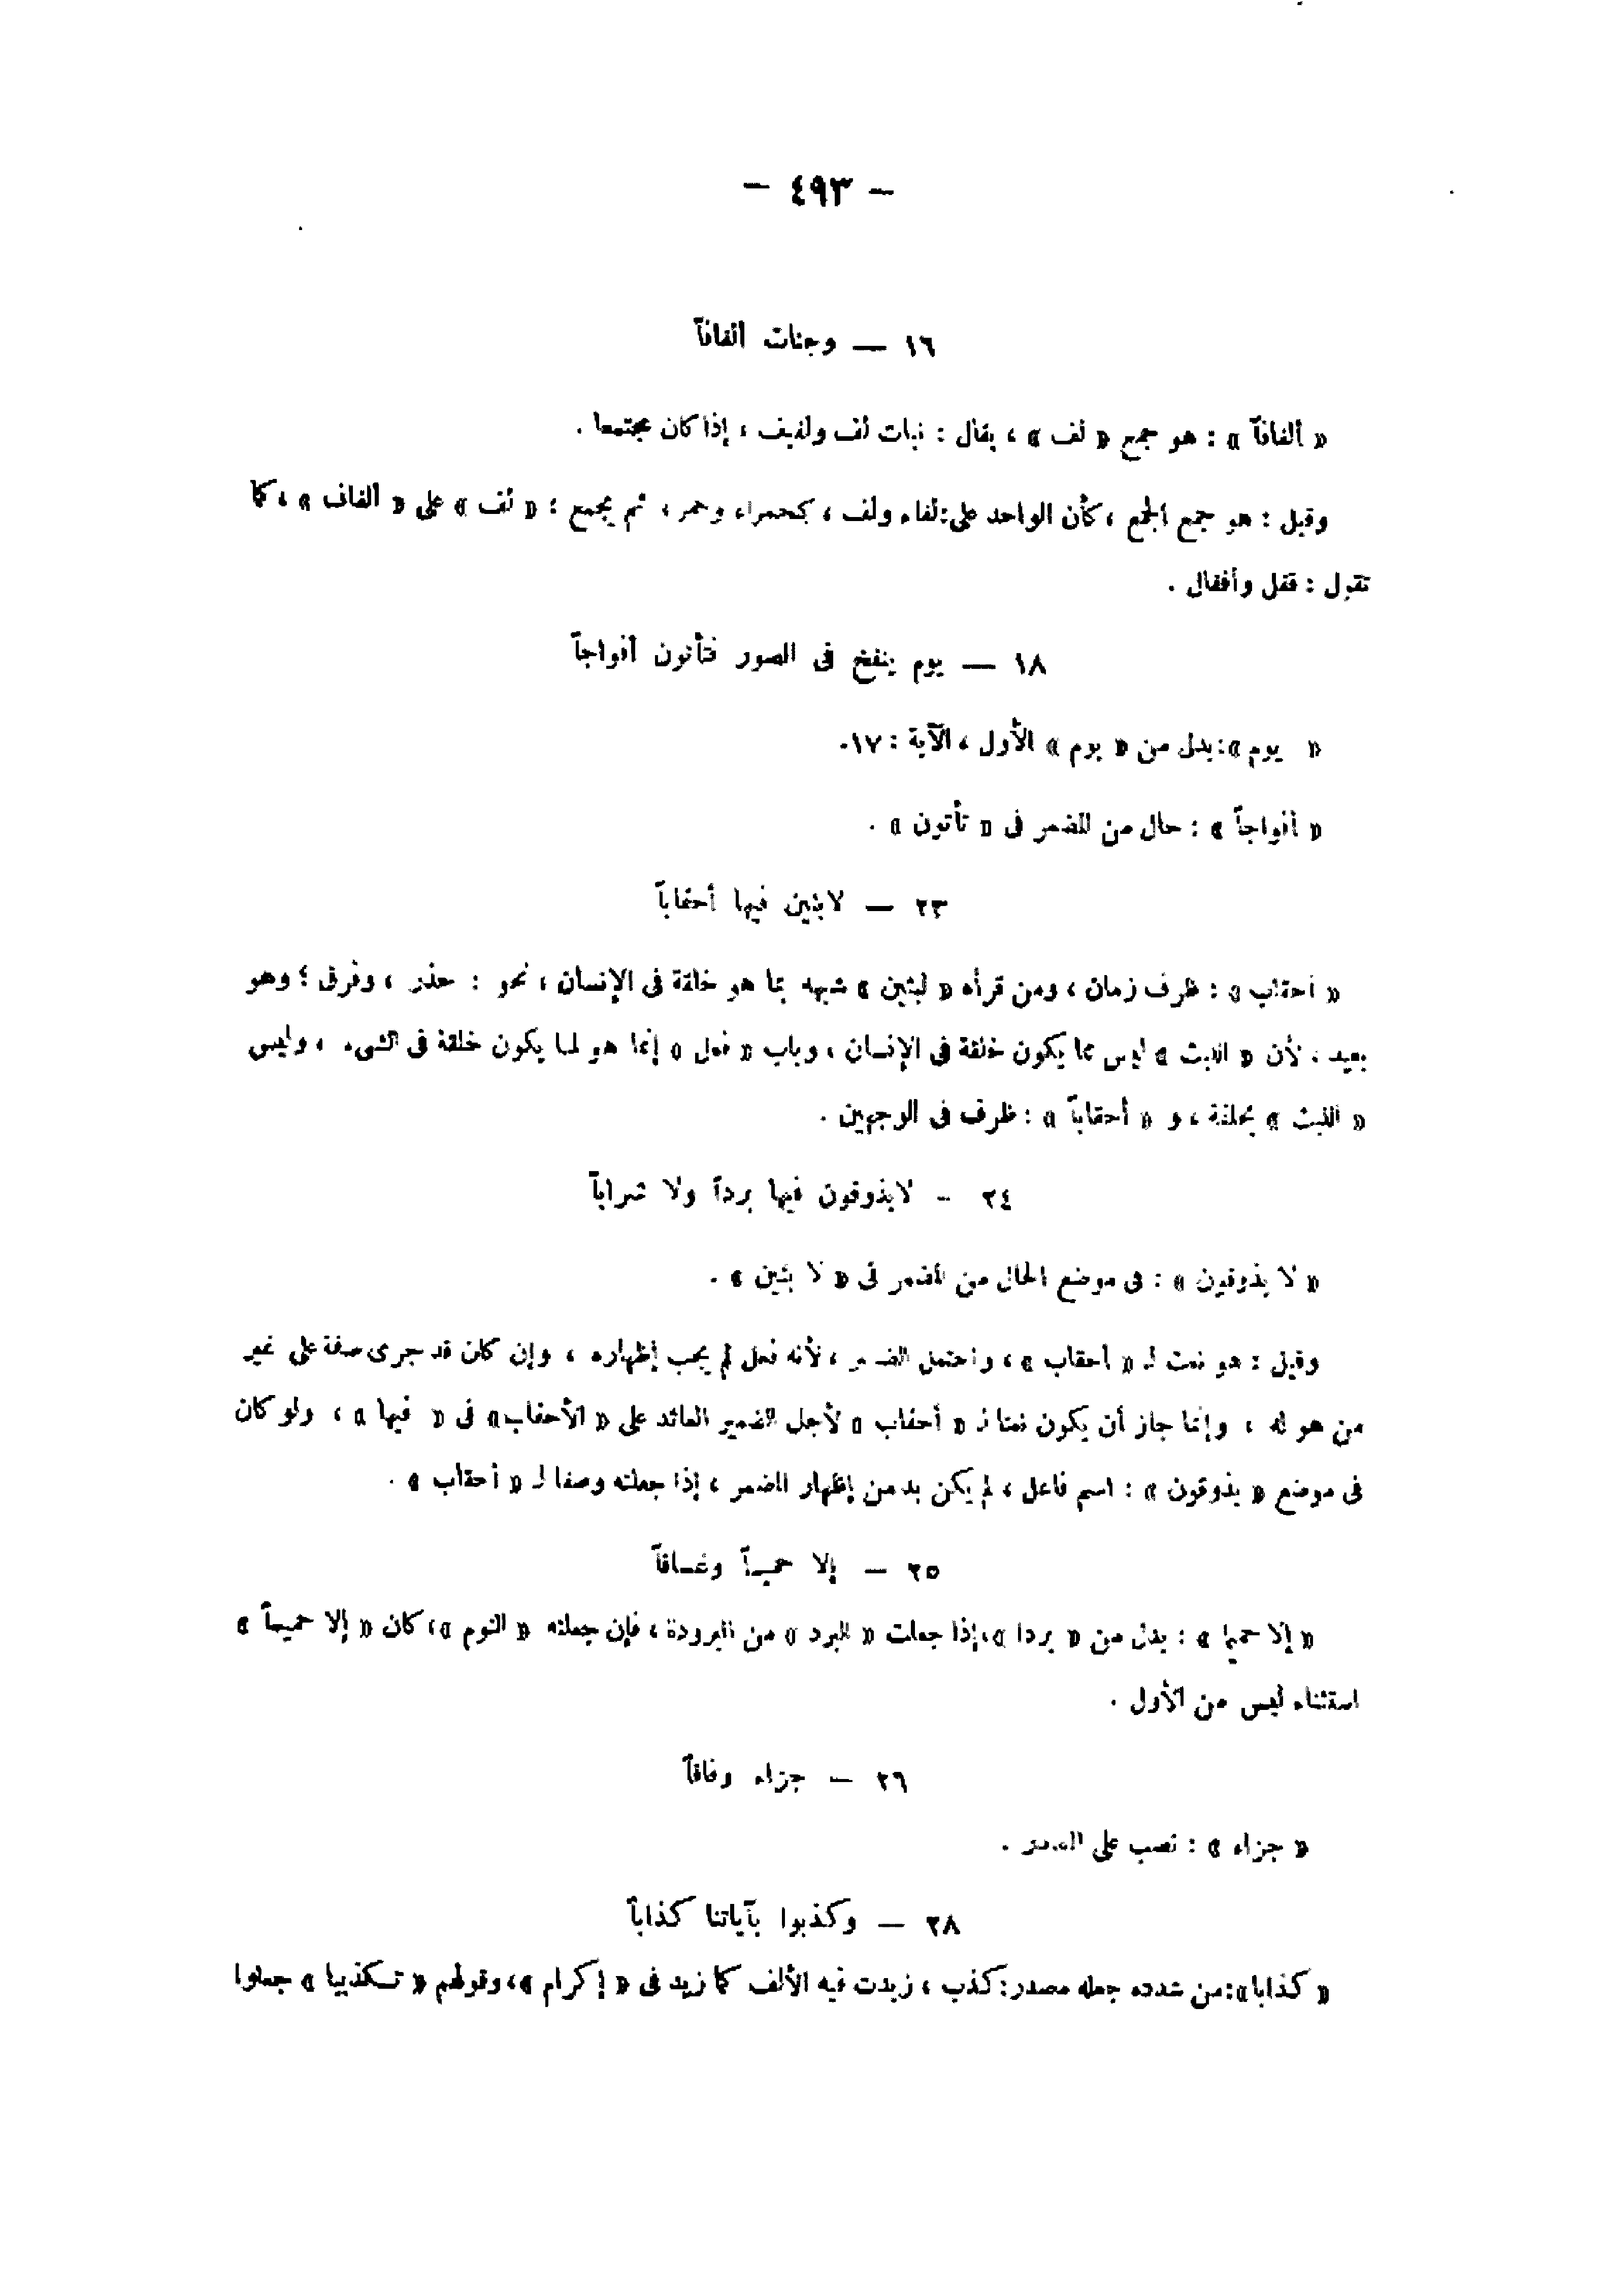 — ٤٩٣ —
١٦ — وجنات ألفافاً
« ألفافاً » : هو جمع « لف » ، يقال : نبات لف ولفيف ، إذا كان مجتمعا .
وقيل : هو جمع الجمع ، كأن الواحد على:لفاء ولف ، كحمراء وحمر ، ثم يجمع : « لف » على « ألفاف » ، كما
تقول : قفل وأقفال .
١٨ — يوم ينفخ فى الصور فتأتون أفواجاً
« يوم »:بدل من « يوم » الأول ، الآية : ١٧.
« أفواجاً » : حال من المضمر فى « تأتون » .
٢٣ — لابثين فيها أحقاباً
« أحقاب » : ظرف زمان ، ومن قرأه « لبثين » شبهه بما هو خلقة فى الإنسان ، نحو : حذر ، وفرق ؛ وهو
بعيد ، لأن « اللبث » ليس مما يكون خلقة فى الإنسان ، وباب « فعل » إنما هو لما يكون خلقة فى الشىء ، وليس
« اللبث » بخلقة ، و « أحقاباً » : ظرف فى الوجهين .
٢٤ - لايذوقون فيها برداً ولا شراباً
« لا يذوقون » : فى موضع الحال من المضمر فى « لا بثين » .
وقيل : هو نعت لـ « أحقاب » ، واحتمل الضمير ، لأنه فعل لم يجب إظهاره ، وإن كان قد جرى صفة على غير
من هو له ، وإنما جاز أن يكون نعتا لـ « أحقاب » لأجل الضمير العائد على « الأحقاب» فى « فيها » ، ولو كان
فى موضع « يذوقون » : اسم فاعل ، لم يكن بد من إظهار المضمر ، إذا جعلته وصفا لـ « أحقاب » .
٢٥ — إلا حميماً وغساقاً
« إلا حميما » : بدل من « بردا »،إذا جعلت « البرد » من البرودة ، فإن جعلته « النوم »، كان « إلا حميماً »
استثناء ليس من الأول .
٢٦ — جزاء وفاقاً
« جزاء » : نصب على المصدر .
٢٨ — وكذبوا بآياتنا كذاباً
« كذابا»:من شدده جعله مصدر:كذب ، زيدت فيه الألف كما زيد فى « إكرام »، وقولهم « تكذيبا » جعلوا